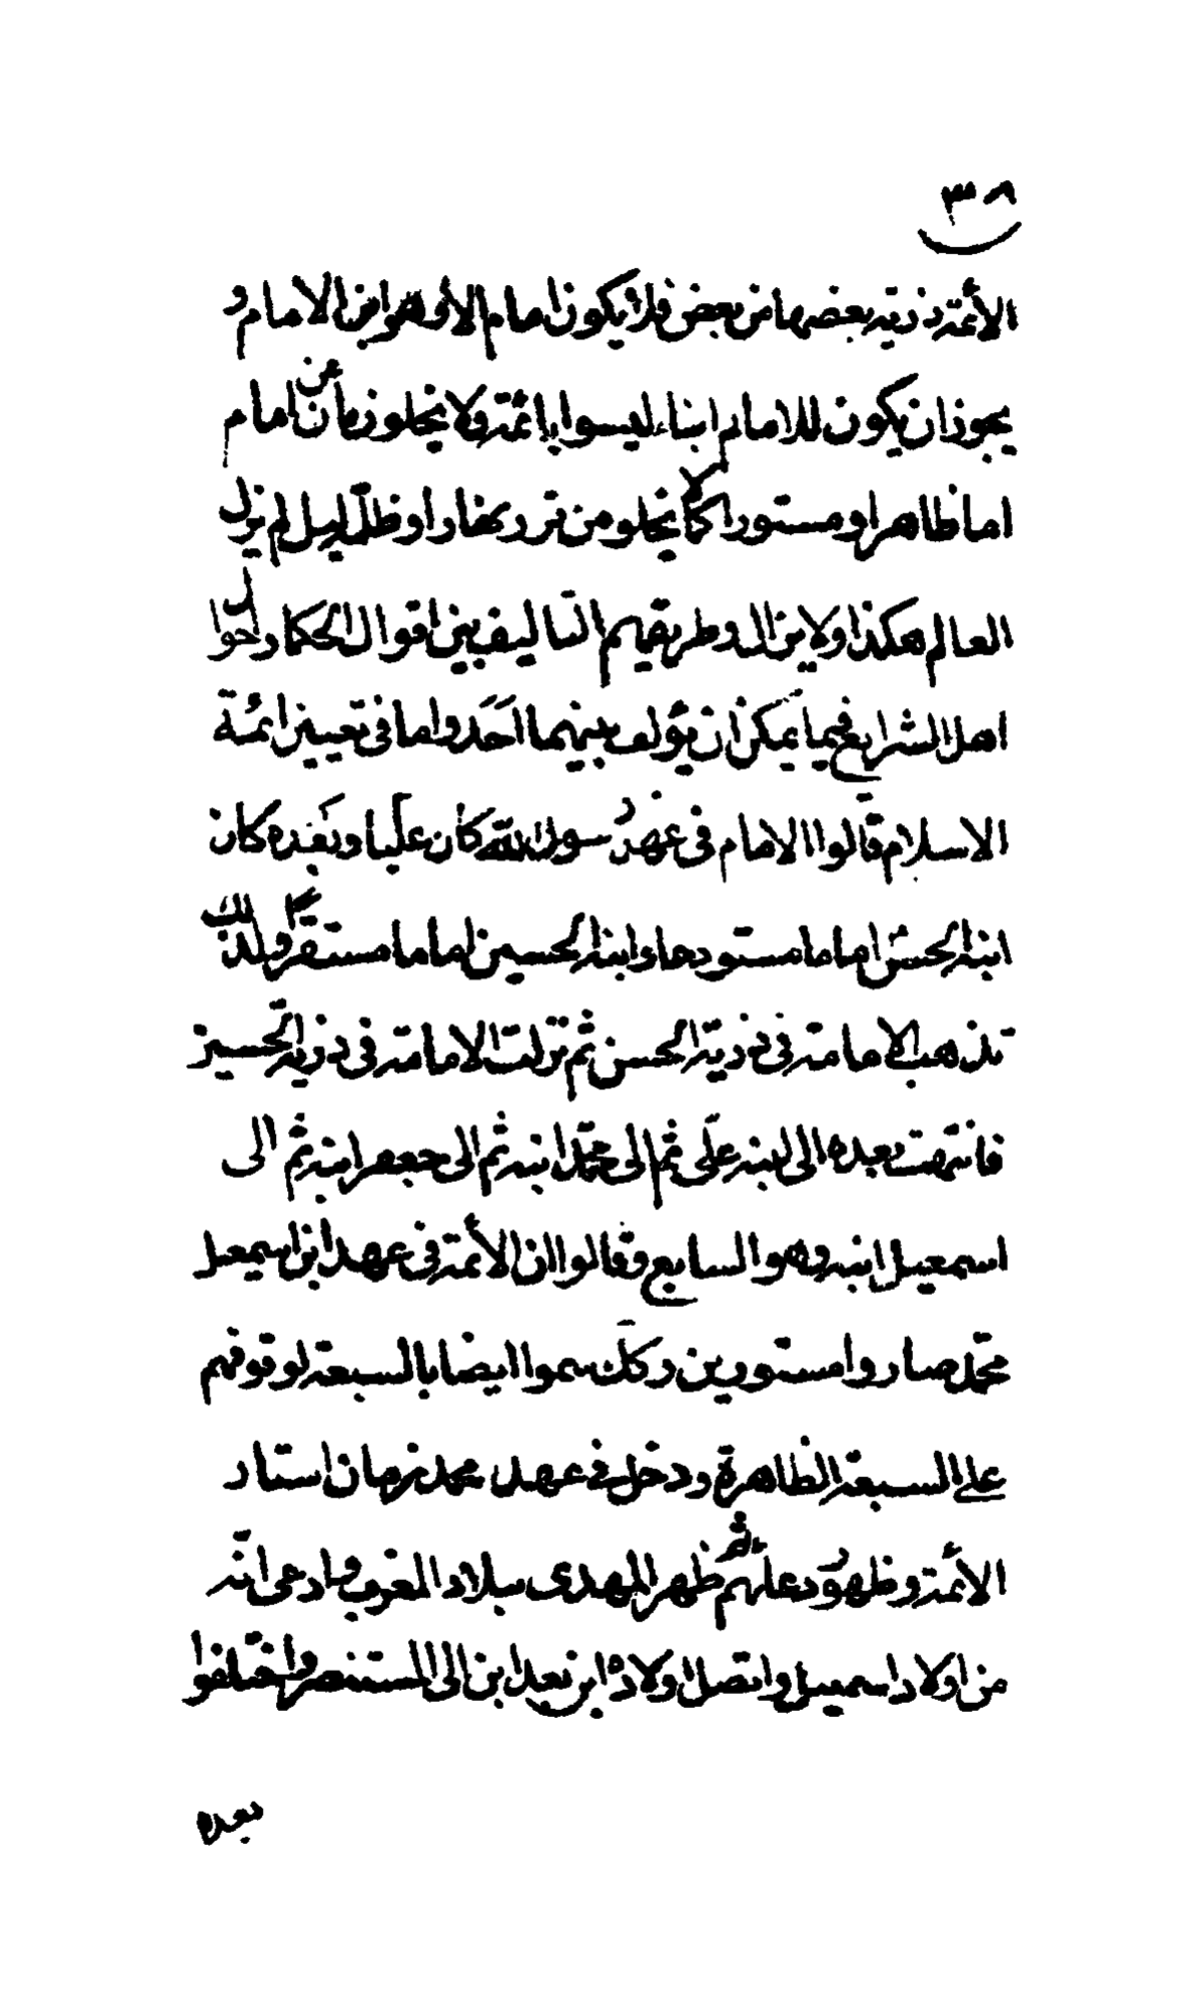 ٣٨
الأئمة ذرية بعضها من بعض فلا يكون امام الا وهو ابن الامام و
يجوز ان يكون للامام ابناء ليسوا بائمة ولا يخلو زمان عن امام
اما ظاهر او مستور كما لا يخلو من نور نهار او ظلمة ليل لم يزل
العالم هكذا ولا يزال وطريقتهم التاليف بين اقوال الحكما واقوال
اهل الشرايع فيما يمكن ان يؤلف بينهما احد واما فى تعيين ائمة
الاسلام قالوا الامام فى عهد رسول الله كان عليا وبعده كان
ابنه الحسن اماما مستودعا وابنه الحسين اماما مستقرا ولذلك لم
تذهب الامامة فى ذرية الحسن ثم نزلت الامامة فى ذرية الحسين
فانتهت بعده الى ابنه على ثم الى محمد ابنه ثم الى جعفر ابنه ثم الى
اسمعيل ابنه وهو السابع وقالوا ان الأئمة فى عهد ابن اسمعيل
محمد صاروا مستورين سموا ايضا بالسبعة لوقوفهم
على السبعة الظاهرة ودخل فى عهد محمد زمان استتار
الأئمة وظهور دعاتهم ثم ظهر المهدى ببلاد المغرب وادعى انه
من اولاد اسمعيل واتصل اولاده ابن بعد ابن الى المستنصر واختلفوا
بعده